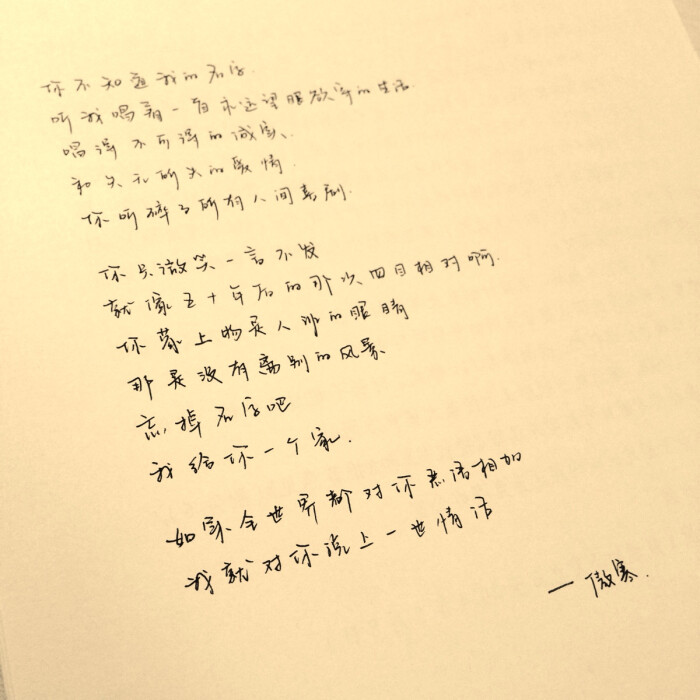 你不知道我的名字.
听我唱着一首永远望眼欲穿的生活.
唱得不可得的诚实、
和失无所失的爱情.
你听碎了所有人间喜剧.
你只微笑一言不发
就像五十年后的那次四目相对啊.
你蒙上物是人非的眼睛
那是没有离别的风景
忘掉名字吧
我给你一个家.
如果全世界都对你恶语相加
我就对你说上一世情话
—傲寒.